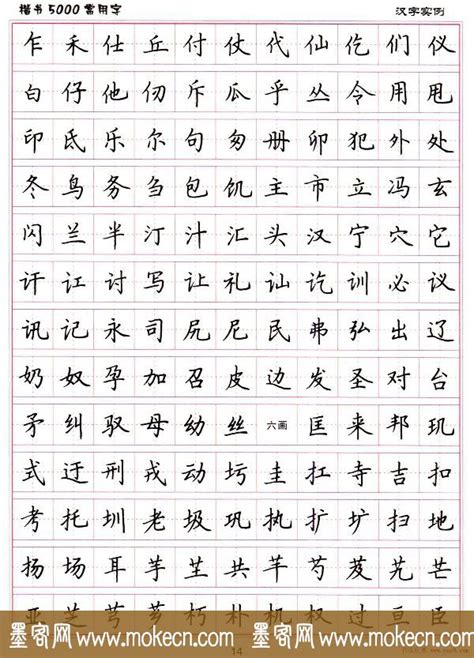 楷书5000常用字 汉字实例
乍 禾 仕 丘 付 仗 代 仙 仡 们 仪
白 仔 他 仞 斥 瓜 乎 丛 令 用 甩
印 氐 乐 尔 句 匆 册 卯 犯 外 处
冬 鸟 务 刍 包 饥 主 市 立 冯 玄
闪 兰 半 汀 汁 汇 头 汉 宁 穴 它
讦 讧 讨 写 让 礼 讪 讫 训 必 议
讯 记 永 司 尻 尼 民 弗 弘 出 辽
奶 奴 孕 加 召 皮 边 发 圣 对 台
矛 纠 驭 母 幼 丝 六画 匡 来 邦 玑
式 迂 刑 戎 动 圬 圭 扛 寺 吉 扣
考 托 圳 老 圾 巩 执 扩 圹 扫 地
扬 场 耳 芋 芏 共 芊 芍 芨 芄 芒
亚 芝 芎 芗 朽 朴 机 权 过 亘 臣
墨客网 www.mokecn.com 墨客网 www.mokecn.com
14